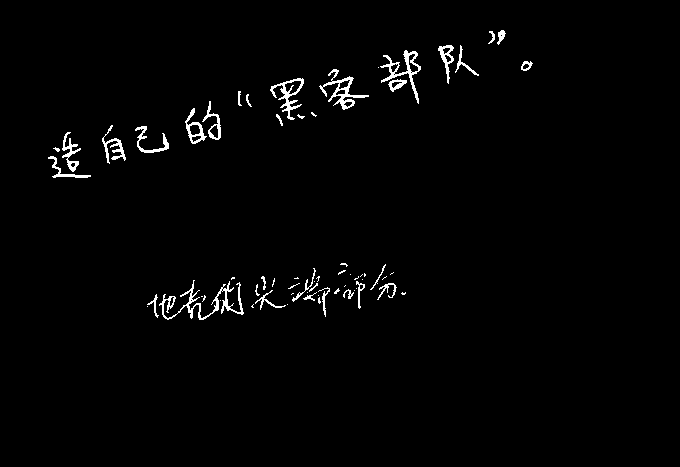 造自己的“黑客部队”。
地壳的尖端部分.